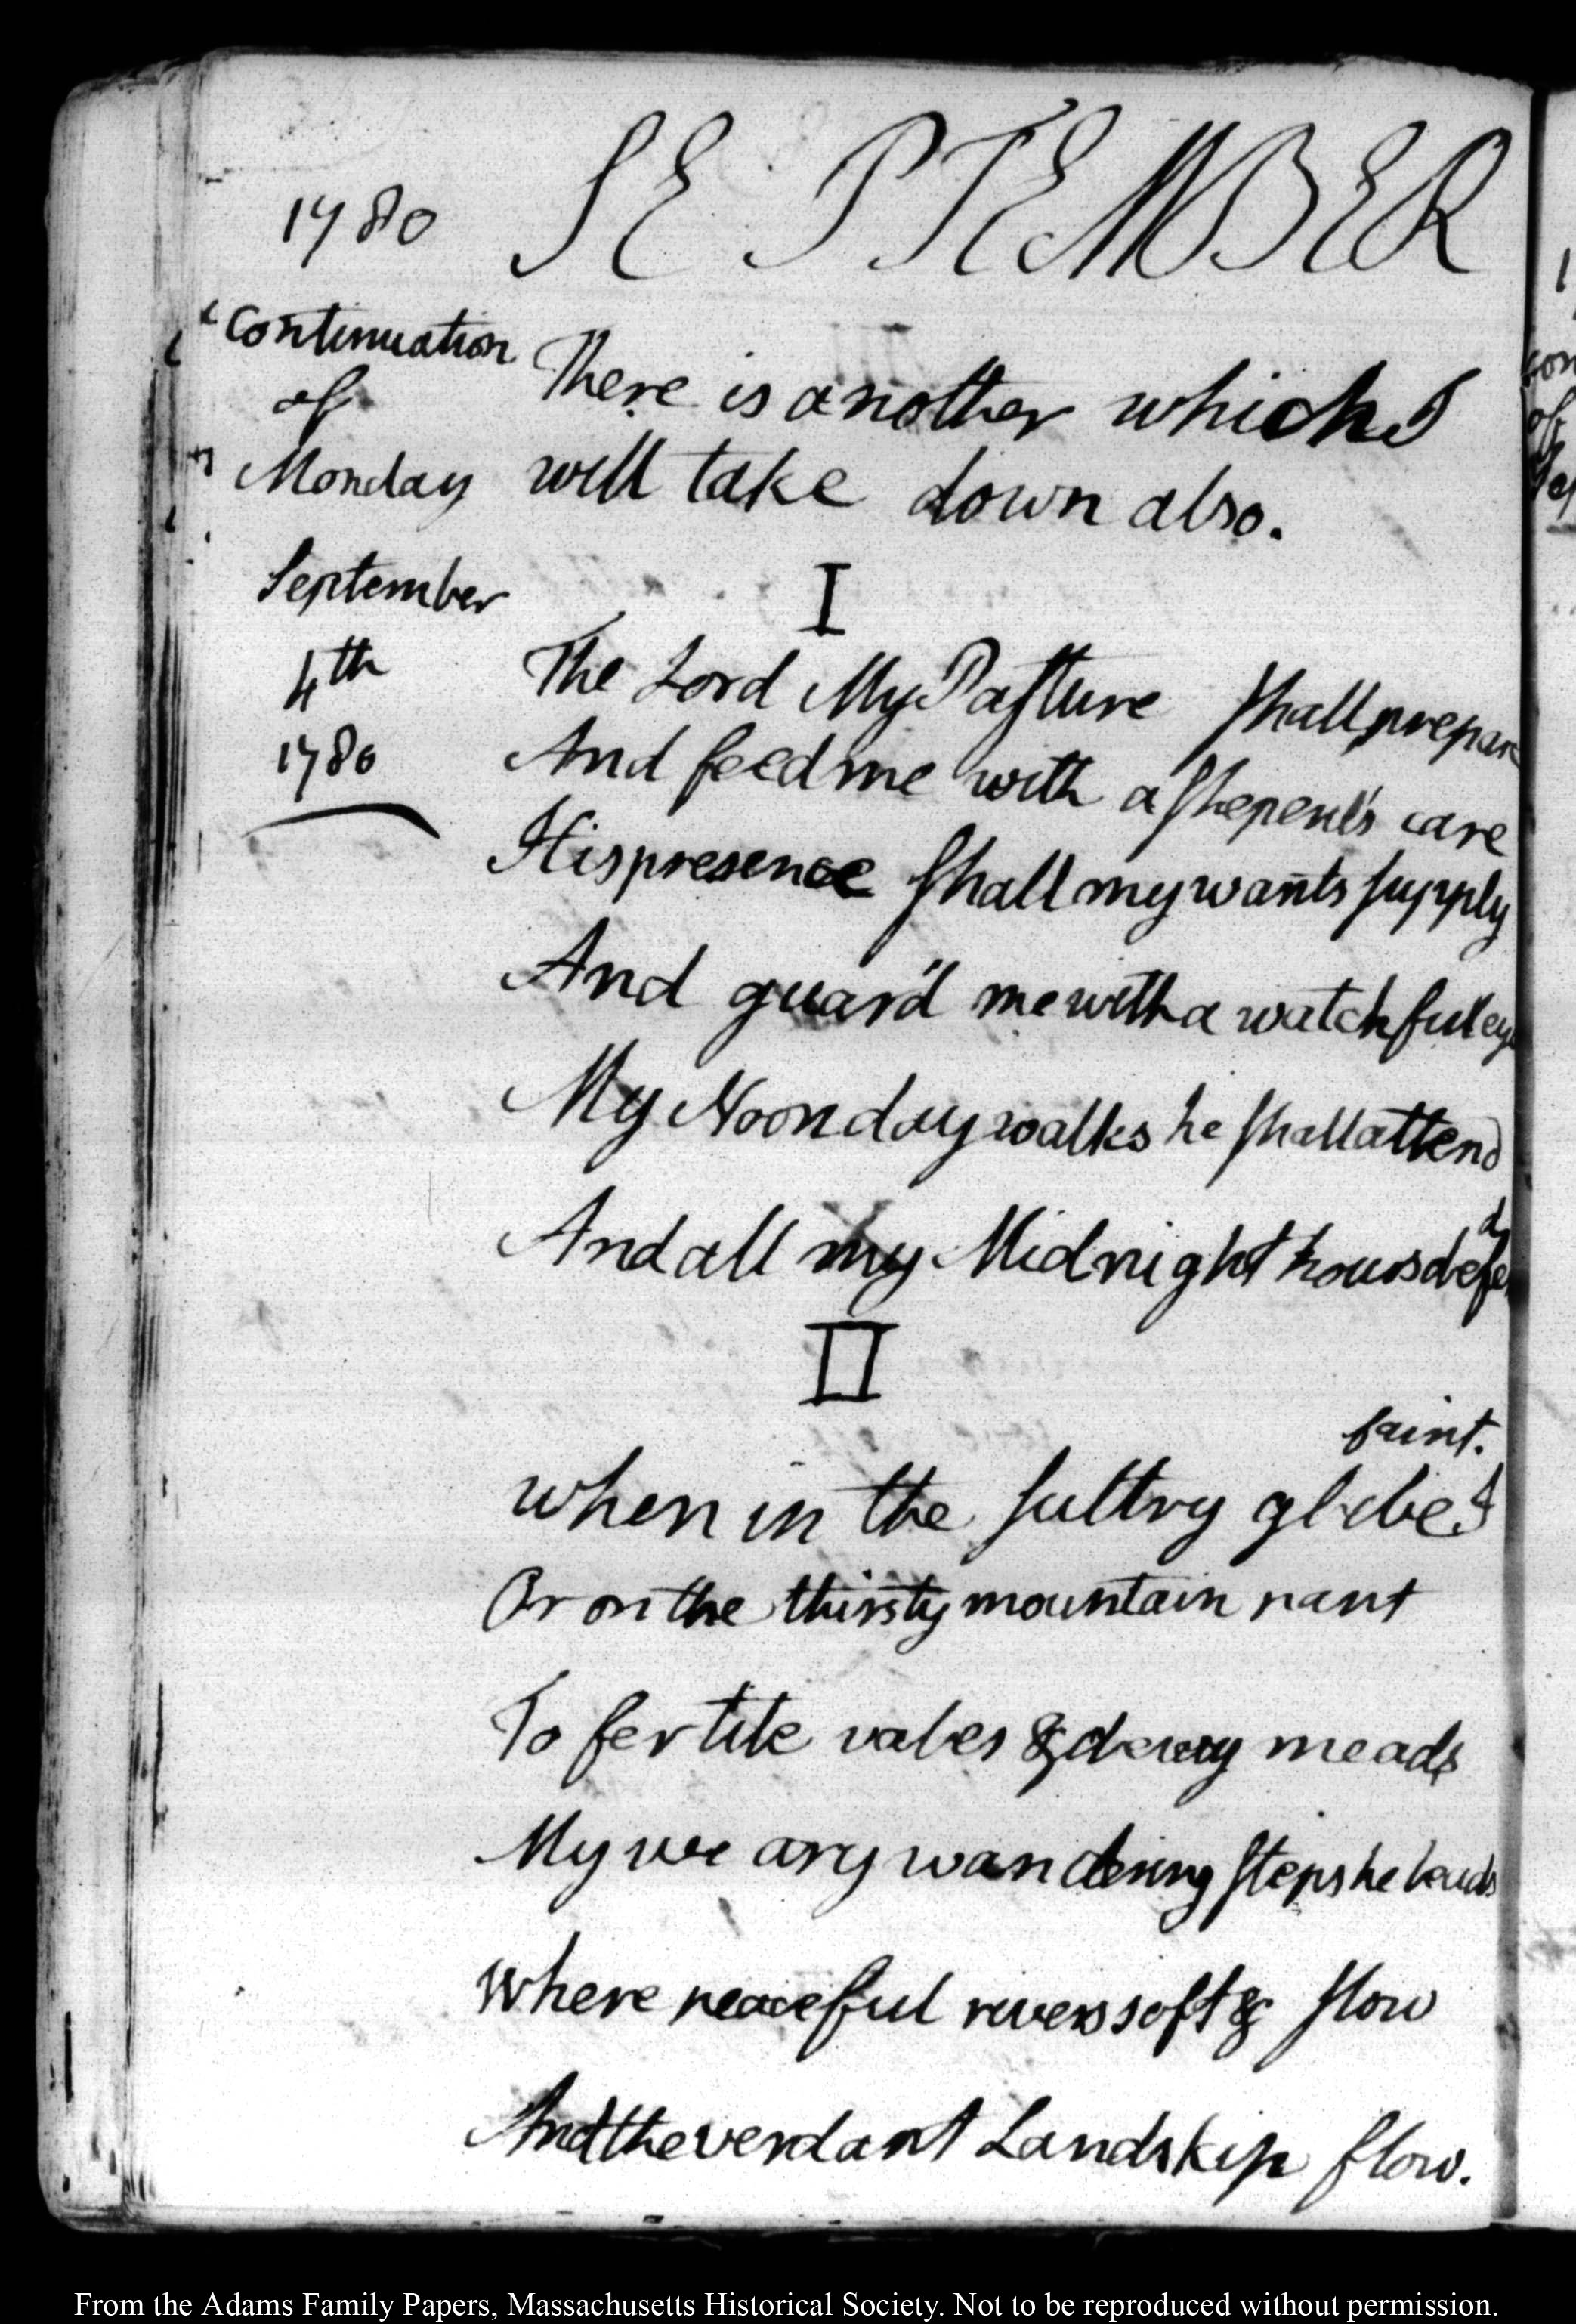 1780 SEPTEMBER
Continuation
of
Monday
September
4th
1780
There is another which I
will take down also.
I
The Lord My Pasture shall prepare
And feed me with a sheperd's care
His presence shall my wants supply
And guard me with a watchful eye
My Noon day walks he shall attend
And all my Midnight hours defend
II
faint.
when in the sultry glebe I
Or on the thirsty mountain pant
To fertile vales & dewy meads
My weary wandering steps he leads
Where peaceful rivers soft & slow
And the verdant Landskip flow.
From the Adams Family Papers, Massachusetts Historical Society. Not to be reproduced without permission.